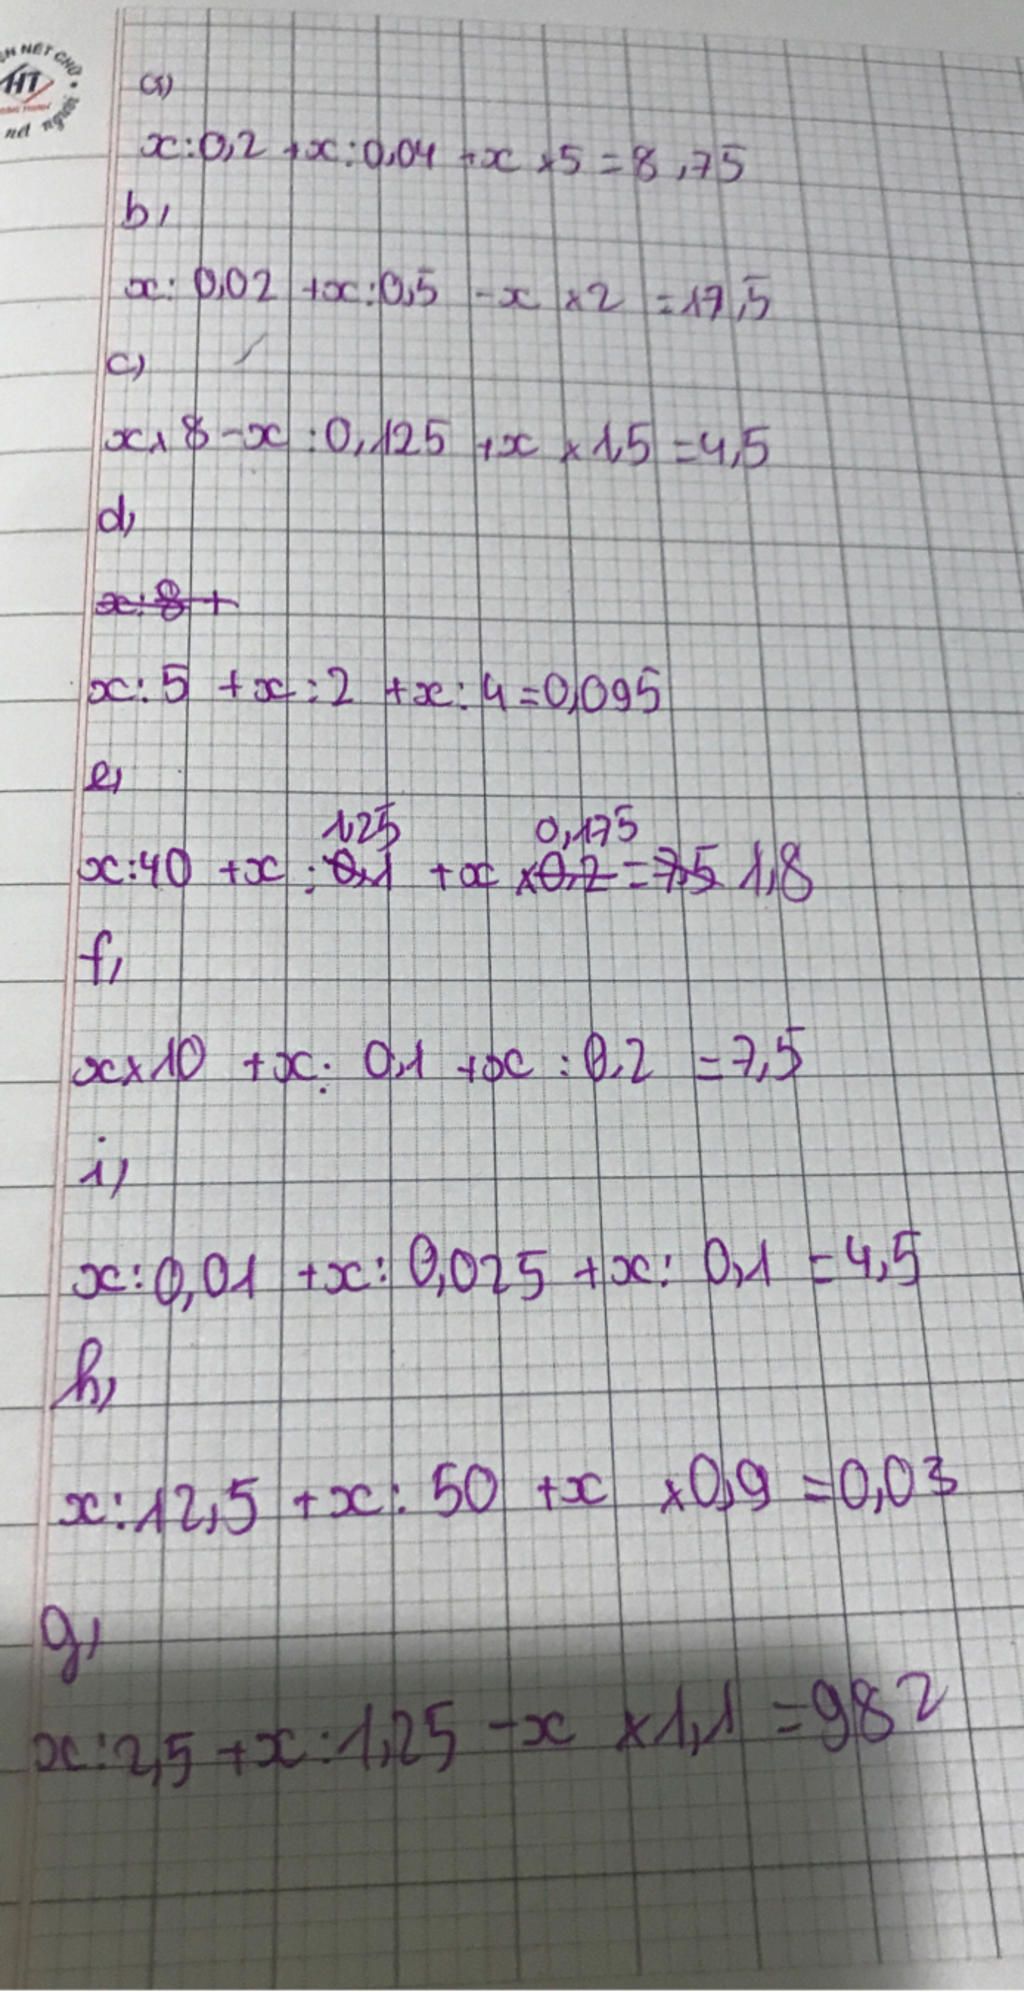 ÈN NÉT CHỮ
HT
nét người
a)
x:0,2 +x:0,04 +x ×5 = 8,75
b,
x: 0,02 +x:0,5 -x ×2 = 17,5
c)
x× 8 -x : 0,125 +x × 1,5 = 4,5
d,
x: 8 +
x: 5 +x : 2 +x : 4 = 0,095
e,
1,25 0,175
x:40 +x : 0,1 +x × 0,2 = 7,5 1,8
f,
x×10 +x: 0,1 +x : 0,2 = 7,5
i)
x:0,01 +x: 0,025 +x: 0,1 = 4,5
h,
x:12,5 +x: 50 +x ×0,9 = 0,03
g,
x:2,5 +x:1,25 -x ×1,1 = 982